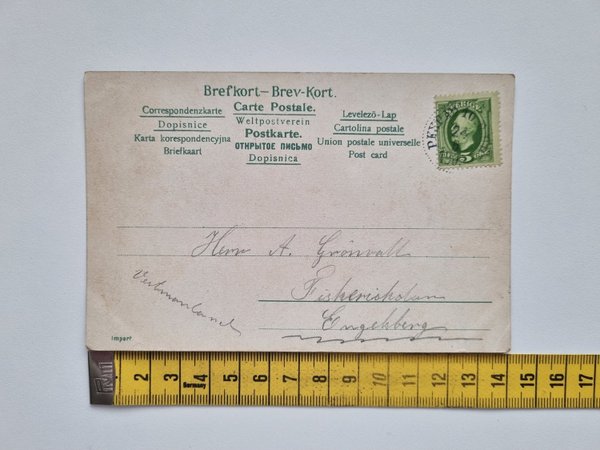 Brefkort–Brev-Kort.
Correspondenzkarte
Dopisnice
Karta korespondencyjna
Briefkaart
Carte Postale.
Weltpostverein
Postkarte.
ОТКРЫТОЕ ПИСЬМО
Dopisnica
Levelező-Lap
Cartolina postale
Union postale universelle
Post card
SVERIGE
5
Herr A. Grönvall
Fiskeriskolan
Engelsberg
Vestmanland
Import
1 2 3 4 5 6 7 8 9 10 11 12 13 14 15 16 17
Germany